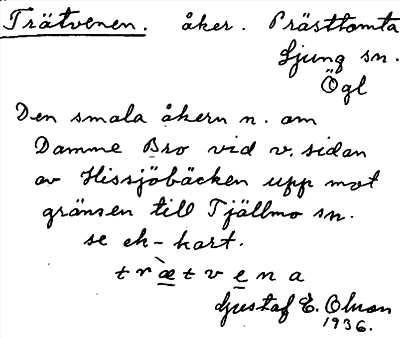 Trätvenen. åker. Prästtomta
Ljung sn.
Ögl
Den smala åkern n. om
Damme Bro vid v. sidan
av Hissjöbäcken upp mot
gränsen till Tjällmo sn.
se ek-kart.
t r æ̀ t v e n a
Gustaf E. Olson
1936.